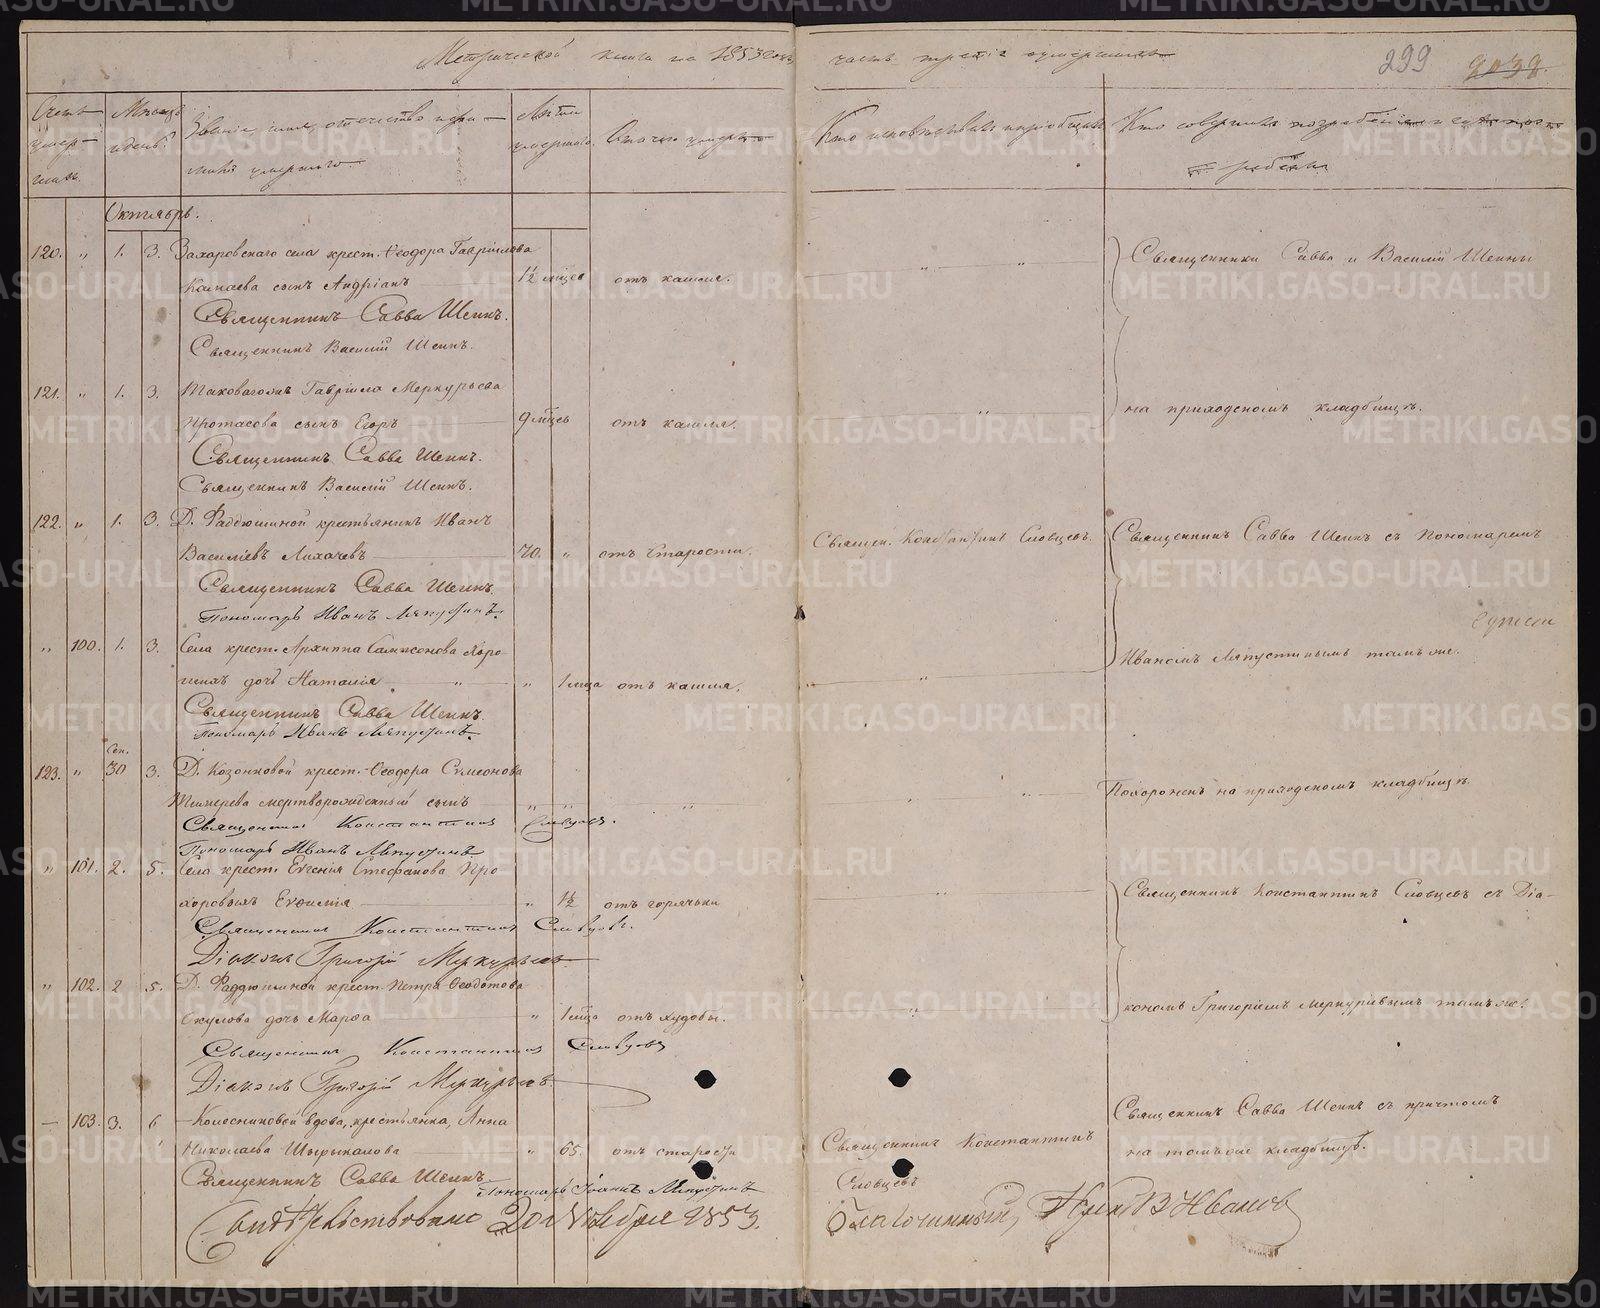 Метрической книги на 1853 годъ часть третiя умершихъ 299
Счетъ умер-шихъ.
Мѣсяцъ и день.
Званiе, имя, отчество и фамилiя умершаго
Лѣта умершаго.
Отъ чего умеръ
Кто исповѣдывалъ и прiобщалъ
Кто совершалъ погребенiе и гдѣ погребены
Октябрь.
120. " 1. 3. Захаровскаго села крест. Ѳеодора Гаврiилова
Канаева сынъ Андрiанъ 1½ мѣсец отъ кашля. " "
Священники Савва и Василiй Шеины
Священникъ Савва Шеинъ.
Священникъ Василiй Шеинъ.
121. " 1. 3. Таковагожъ Гаврiила Меркурьева
Протасова сынъ Егоръ 9 мѣсец отъ кашля. "
на приходскомъ кладбищѣ.
Священникъ Савва Шеинъ.
Священникъ Василiй Шеинъ.
122. " 1. 3. Д. Фаддюшиной крестьянинъ Иванъ
Василiевъ Лихачевъ 70. " отъ Старости.
Священ. Константинъ Словцовъ.
Священникъ Савва Шеинъ съ Пономаремъ
Священникъ Савва Шеинъ
Пономарь Иванъ Ляпустинъ.
" 100. 1. 3. Села крест. Архиппа Сампсонова
дочь Наталiя " " 1 мца отъ кашля. "
Иваномъ Ляпустинымъ тамъ же.
Священникъ Савва Шеинъ
Пономарь Иванъ Ляпустинъ.
Сен.
123. " 30 3. Д. Козонковой крест. Ѳеодора Симеонова
мертворожденный сынъ " " "
Похороненъ на приходскомъ кладбищѣ.
Священникъ Константинъ Словцовъ.
Пономарь Иванъ Ляпустинъ
" 101. 2. 5. Села крест. Евгенiя Стефанова Про-
хоровыхъ Евѳимiя " 1½ отъ горячки "
Священникъ Константинъ Словцовъ съ Дiа-
Священникъ Константинъ Словцовъ.
Дiаконъ Григорiй Меркурьевъ
" 102. 2 5. Д. Фаддюшиной крест. Петра Ѳеодотова
Окулова дочь Марѳа " 1 мца отъ худобы. "
кономъ Григорiемъ Меркурiевымъ тамъ же.
Священникъ Константинъ Словцовъ
Дiаконъ Григорiй Меркурьевъ.
— 103. 3. 6 Колесниковой вдова, крестьянка, Анна
Николаева " 65. отъ старости
Священникъ Константинъ Словцовъ
Священникъ Савва Шеинъ съ причтомъ
на томъ же кладбищѣ.
Священникъ Савва Шеинъ
Пономарь Iоаннъ Ляпустинъ
Свидѣтельствовано 20 Ноября 1853.
Благочинный, Ивановъ
METRIKI.GASO-URAL.RU